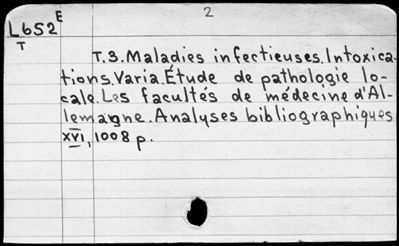 2
L652E
T
T.3. Maladies infectieuses. Intoxica-
tions. Varia. Étude de pathologie lo-
cale. Les facultés de médecine d'Al-
lemagne. Analyses bibliographiques
XVI, 1008 p.